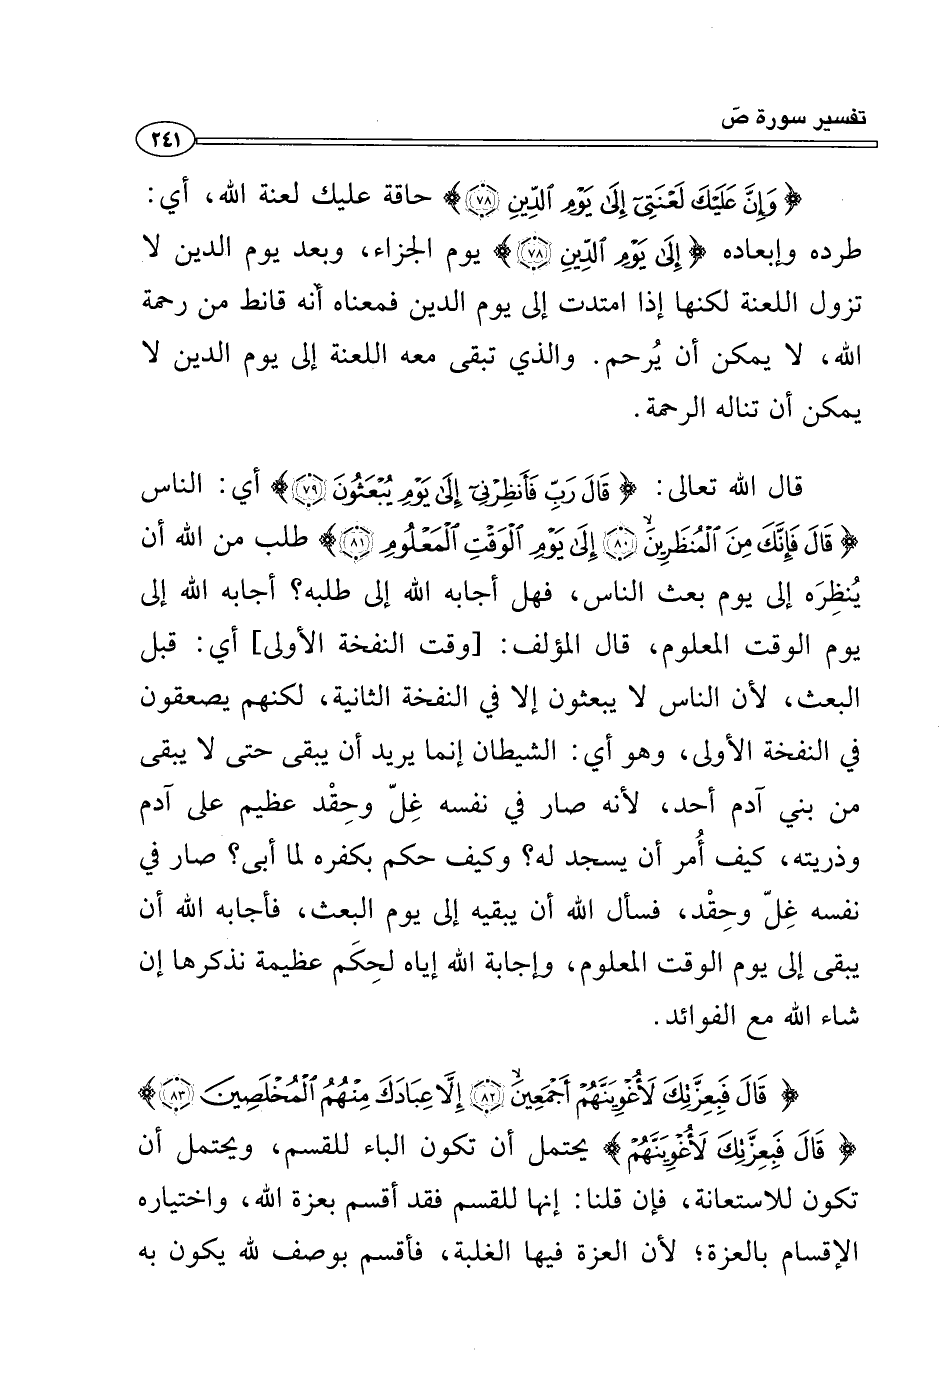 تفسير سورة صَ
٢٤١
﴿ وَإِنَّ عَلَيْكَ لَعْنَتِىٓ إِلَىٰ يَوْمِ ٱلدِّينِ ﴿٧٨﴾ ﴾ حاقة عليك لعنة الله، أي:
طرده وإبعاده ﴿ إِلَىٰ يَوْمِ ٱلدِّينِ ﴿٧٨﴾ ﴾ يوم الجزاء، وبعد يوم الدين لا
تزول اللعنة لكنها إذا امتدت إلى يوم الدين فمعناه أنه قانط من رحمة
الله، لا يمكن أن يُرحم. والذي تبقى معه اللعنة إلى يوم الدين لا
يمكن أن تناله الرحمة.
قال الله تعالى: ﴿ قَالَ رَبِّ فَأَنظِرْنِىٓ إِلَىٰ يَوْمِ يُبْعَثُونَ ﴿٧٩﴾ ﴾ أي: الناس
﴿ قَالَ فَإِنَّكَ مِنَ ٱلْمُنظَرِينَ ﴿٨٠﴾ إِلَىٰ يَوْمِ ٱلْوَقْتِ ٱلْمَعْلُومِ ﴿٨١﴾ ﴾ طلب من الله أن
يُنظِرَه إلى يوم بعث الناس، فهل أجابه الله إلى طلبه؟ أجابه الله إلى
يوم الوقت المعلوم، قال المؤلف: [وقت النفخة الأولى] أي: قبل
البعث، لأن الناس لا يبعثون إلا في النفخة الثانية، لكنهم يصعقون
في النفخة الأولى، وهو أي: الشيطان إنما يريد أن يبقى حتى لا يبقى
من بني آدم أحد، لأنه صار في نفسه غِلّ وحِقْد عظيم على آدم
وذريته، كيف أُمر أن يسجد له؟ وكيف حكم بكفره لما أبى؟ صار في
نفسه غِلّ وحِقْد، فسأل الله أن يبقيه إلى يوم البعث، فأجابه الله أن
يبقى إلى يوم الوقت المعلوم، وإجابة الله إياه لحِكَم عظيمة نذكرها إن
شاء الله مع الفوائد.
﴿ قَالَ فَبِعِزَّتِكَ لَأُغْوِيَنَّهُمْ أَجْمَعِينَ ﴿٨٢﴾ إِلَّا عِبَادَكَ مِنْهُمُ ٱلْمُخْلَصِينَ ﴿٨٣﴾ ﴾
﴿ قَالَ فَبِعِزَّتِكَ لَأُغْوِيَنَّهُمْ ﴾ يحتمل أن تكون الباء للقسم، ويحتمل أن
تكون للاستعانة، فإن قلنا: إنها للقسم فقد أقسم بعزة الله، واختياره
الإقسام بالعزة؛ لأن العزة فيها الغلبة، فأقسم بوصف لله يكون به